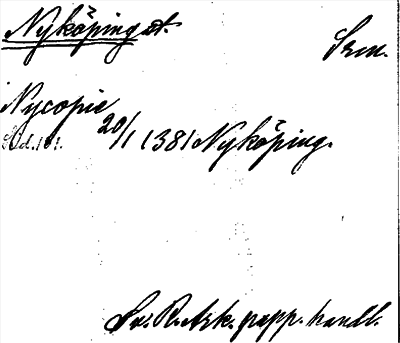 Nyköping st.
Srm.
Nycopie
20/1 1381 Nyköping.
Sv. R. Ark. papp. handl.